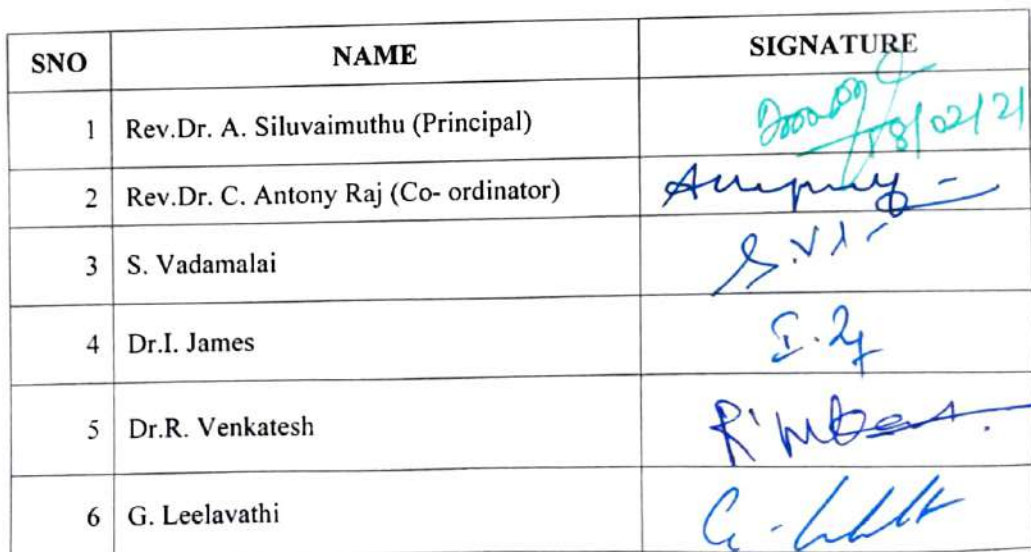 SNO NAME SIGNATURE
1 Rev.Dr. A. Siluvaimuthu (Principal) 18/02/21
2 Rev.Dr. C. Antony Raj (Co- ordinator)
3 S. Vadamalai
4 Dr.I. James
5 Dr.R. Venkatesh
6 G. Leelavathi